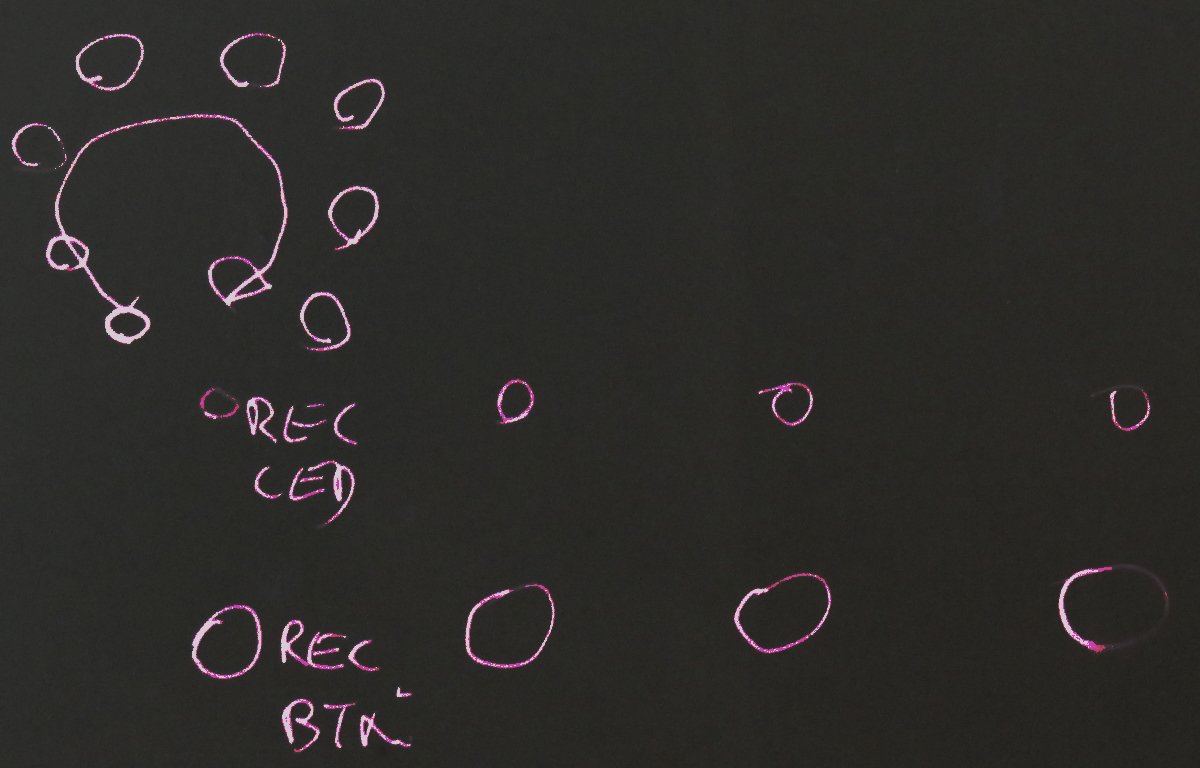 REC
LED
REC
BTN